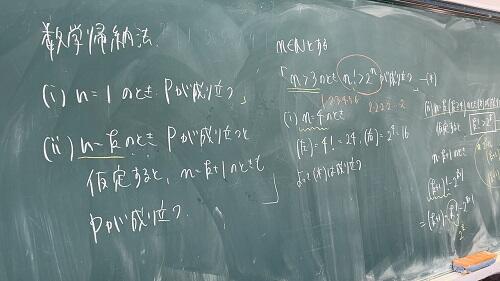 数学帰納法
(i) n=1のとき Pが成り立つ」
(ii) n=kのとき Pが成り立つと
仮定すると、n=k+1のときも
Pが成り立つ 」
n∈Nとする
「n>3のとき n!>2ⁿが成り立つ」—(*)
(i) n=4のとき
(左)=4!=24, (右)=2⁴=16
よって(*)は成り立つ
仮定する
n=k+1のとき
(k+1)!-2^{k+1}